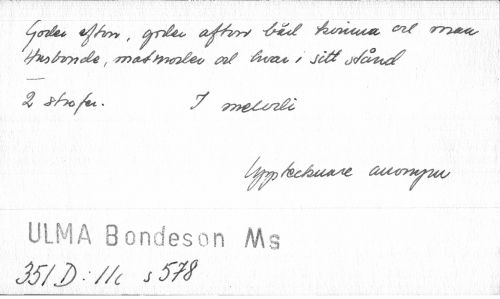 Goder afton, goder afton båd kvinna och man
Husbonde, matmoder och hvar i sitt stånd
—
2 strofer. 1 melodi
Upptecknare anonym
ULMA Bondeson Ms
351 D: 11c s 578